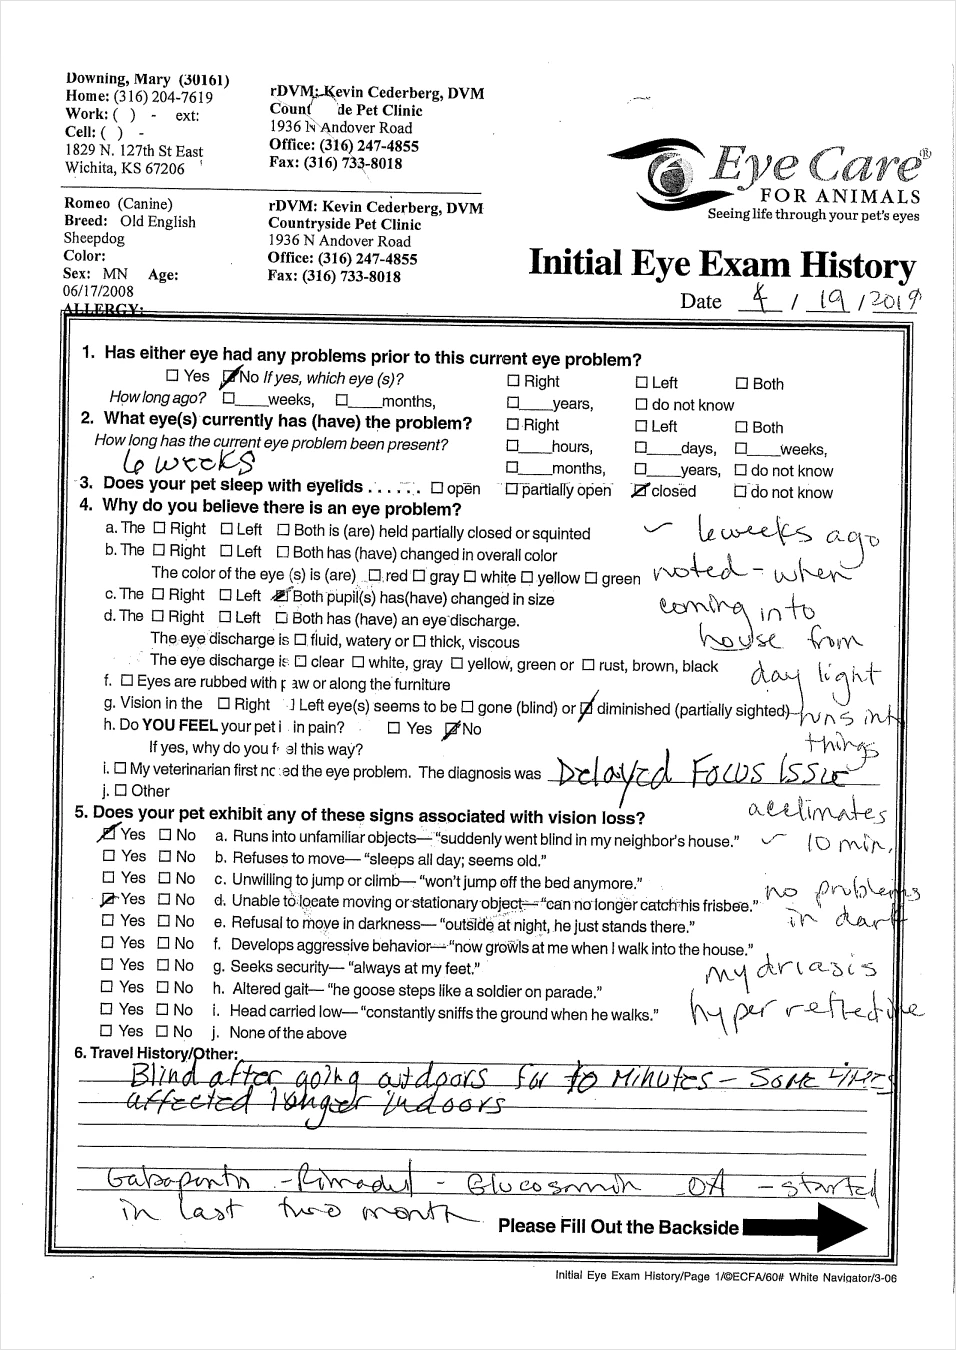 Downing, Mary (30161)
Home: (316) 204-7619
Work: ( ) - ext:
Cell: ( ) -
1829 N. 127th St East
Wichita, KS 67206
rDVM: Kevin Cederberg, DVM
Count de Pet Clinic
1936 N Andover Road
Office: (316) 247-4855
Fax: (316) 733-8018
Eye Care®
FOR ANIMALS
Seeing life through your pet's eyes
Romeo (Canine)
Breed: Old English
Sheepdog
Color:
Sex: MN Age:
06/17/2008
ALLERGY:
rDVM: Kevin Cederberg, DVM
Countryside Pet Clinic
1936 N Andover Road
Office: (316) 247-4855
Fax: (316) 733-8018
Initial Eye Exam History
Date 4 / 19 / 2019
1. Has either eye had any problems prior to this current eye problem?
☐ Yes ☑ No If yes, which eye (s)? ☐ Right ☐ Left ☐ Both
How long ago? ☐____weeks, ☐____months, ☐____years, ☐ do not know
2. What eye(s) currently has (have) the problem? ☐ Right ☐ Left ☐ Both
How long has the current eye problem been present? ☐____hours, ☐____days, ☐____weeks,
6 weeks ☐____months, ☐____years, ☐ do not know
3. Does your pet sleep with eyelids ...... ☐ open ☐ partially open ☑ closed ☐ do not know
4. Why do you believe there is an eye problem?
a. The ☐ Right ☐ Left ☐ Both is (are) held partially closed or squinted
b. The ☐ Right ☐ Left ☐ Both has (have) changed in overall color
The color of the eye (s) is (are) ☐ red ☐ gray ☐ white ☐ yellow ☐ green
c. The ☐ Right ☐ Left ☑ Both pupil(s) has(have) changed in size
d. The ☐ Right ☐ Left ☐ Both has (have) an eye discharge.
The eye discharge is ☐ fluid, watery or ☐ thick, viscous
The eye discharge is ☐ clear ☐ white, gray ☐ yellow, green or ☐ rust, brown, black
f. ☐ Eyes are rubbed with paw or along the furniture
g. Vision in the ☐ Right Left eye(s) seems to be ☐ gone (blind) or ☑ diminished (partially sighted)
h. Do YOU FEEL your pet i in pain? ☐ Yes ☑ No
If yes, why do you f el this way?
i. ☐ My veterinarian first no ed the eye problem. The diagnosis was Delayed Focus Issue
j. ☐ Other
~ 6 weeks ago
noted - when
coming into
house from
day light
runs into
things
acclimates
~ 10 min.
no problems
in dark
mydriasis
hyperreflective
5. Does your pet exhibit any of these signs associated with vision loss?
☑ Yes ☐ No a. Runs into unfamiliar objects— "suddenly went blind in my neighbor's house."
☐ Yes ☐ No b. Refuses to move— "sleeps all day; seems old."
☐ Yes ☐ No c. Unwilling to jump or climb— "won't jump off the bed anymore."
☑ Yes ☐ No d. Unable to locate moving or stationary object— "can no longer catch his frisbee."
☐ Yes ☐ No e. Refusal to move in darkness— "outside at night, he just stands there."
☐ Yes ☐ No f. Develops aggressive behavior— "now growls at me when I walk into the house."
☐ Yes ☐ No g. Seeks security— "always at my feet."
☐ Yes ☐ No h. Altered gait— "he goose steps like a soldier on parade."
☐ Yes ☐ No i. Head carried low— "constantly sniffs the ground when he walks."
☐ Yes ☐ No j. None of the above
6. Travel History/Other:
Blind after going outdoors for 10 Minutes - Some times
affected longer indoors
Gabapentn - Rimadyl - Glucosamin OA - started
in last two month
Please Fill Out the Backside
Initial Eye Exam History/Page 1/©ECFA/60# White Navigator/3-06